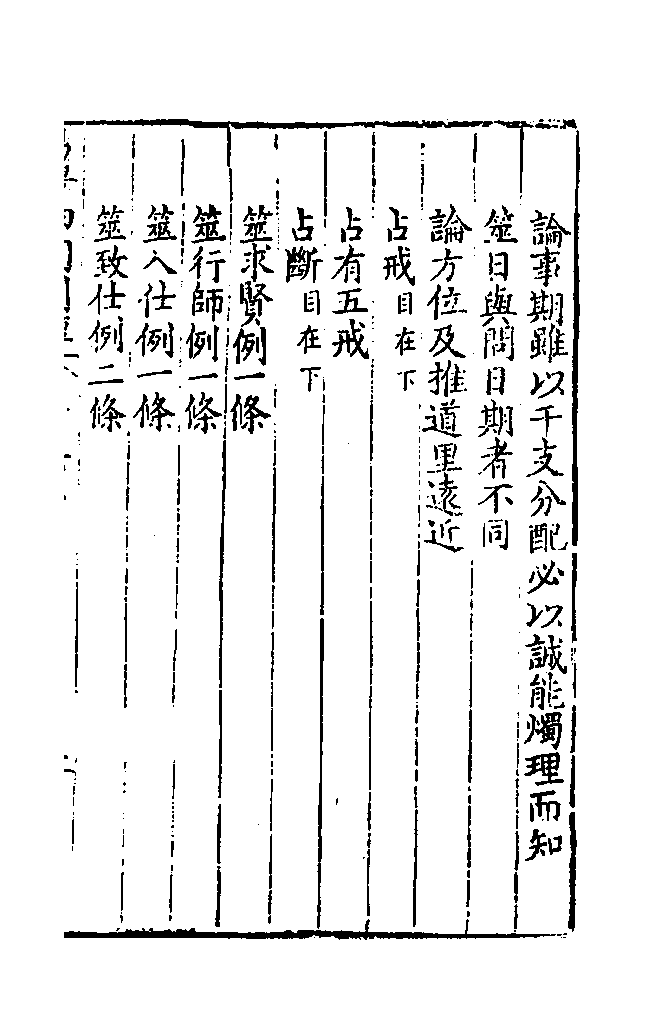 論事期雖以干支分配必以誠能燭理而知
筮日與問日期者不同
論方位及推道里遠近
占戒目在下
占有五戒
占斷目在下
筮求賢例一條
筮行師例一條
筮入仕例一條
筮致仕例二條